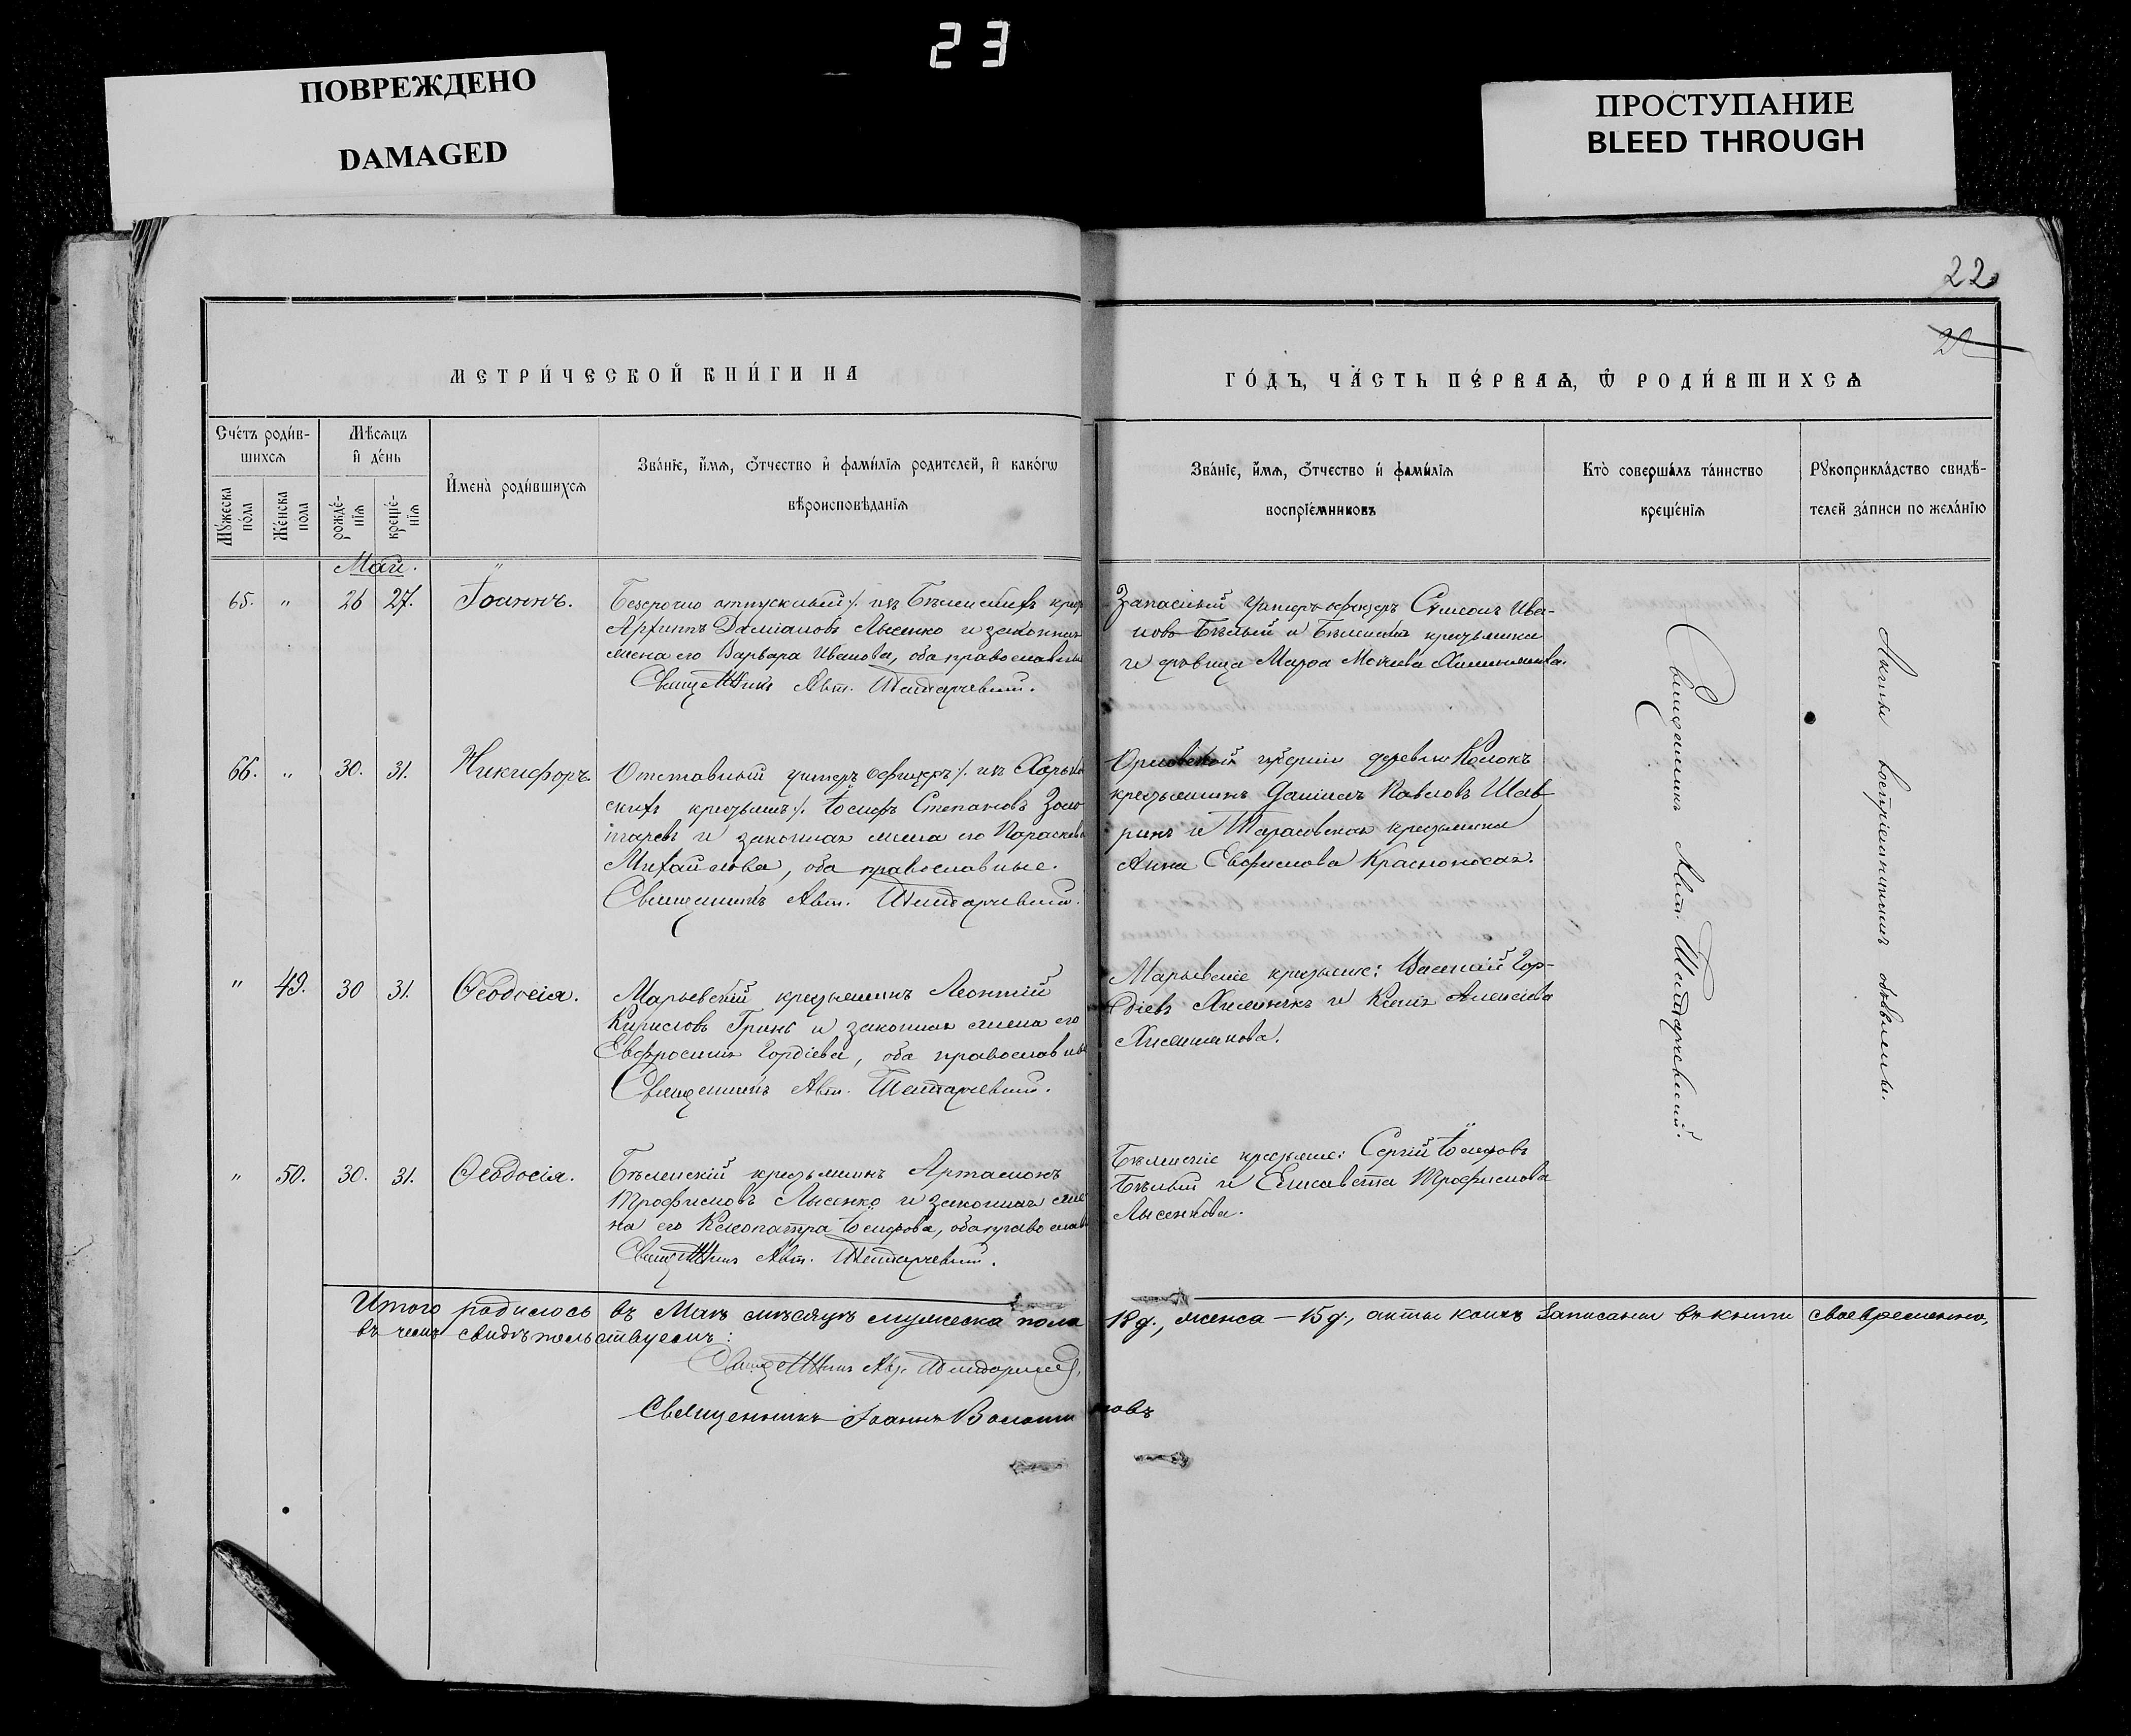 23
ПОВРЕЖДЕНО
DAMAGED
ПРОСТУПАНИЕ
BLEED THROUGH
22
МЕТРИ́ЧЕСКОЙ КНИ́ГИ НА
ГО́ДЪ, ЧА́СТЬ ПЕ́РВАѦ, Ѿ РОДИ́ВШИХСѦ
Сче́тъ роди́в-
шихсѧ
Мѣ́сѧцъ
и҆ де́нь
Мꙋ́жеска
по́ла
Же́нска
пола
рожде́-
нїѧ
креще́-
нїѧ
И҆мена̀ роди́вшихсѧ
Зва́нїе, и҆́мѧ, ѻ҆́тчество и҆ фами́лїѧ родителей, и҆ како́гѡ
вѣроисповѣ́данїѧ
Зва́нїе, и҆́мѧ, ѻ҆́тчество и҆ фами́лїѧ
воспрїе́мниковъ
Кто̀ соверша́лъ та́инство
креще́нїѧ
Рꙋкоприкла́дство свидѣ́-
телей за́писи по жела́нїю
Май.
65. " 26 27. Іоаннъ.
Безсрочно отпускный из Бѣленскихъ крес
Архиппъ Даміановъ Лысенко и законная
жена его Варвара Иванова, оба православные
Священникъ Авт. Шендаревскій.
Запасный унтеръ-офицеръ Симеонъ Ива-
новъ Бѣлый и Бѣленская крестьянка
и дѣвица Марѳа Моисеева
66. " 30. 31. Никифоръ.
Отставный унтеръ офицеръ изъ Харьков
скихъ крестьянъ Іосифъ Степановъ Золо
таревъ и законная жена его Параскева
Михайлова, оба православные.
Священникъ Авт. Шендаревскій.
Орловской губерніи деревни Колокъ
крестьянинъ Даніилъ Павловъ Шав
ринъ и Тарасовская крестьянка
Анна Ефимова Красноносая.
" 49. 30 31. Ѳеодосія.
Марьевскій крестьянинъ Леонтій
Кириловъ Гринь и законная жена его
Евфросинія Гордіева, оба православные
Священникъ Авт. Шендаревскій.
Марьевскіе крестьяне: Василій Гор-
діевъ Хижнякъ и Ксенія Алексіева
Хижнякова.
" 50. 30. 31. Ѳеодосія.
Бѣленскій крестьянинъ Артамонъ
Трофимовъ Лысенко и законная же
на его Клеопатра Іосифова, оба правосла
Священникъ Авт. Шендаревскій.
Бѣленскіе крестьяне: Сергій Іосифовъ
Бѣлый и Елисавета Трофимова
Лысенкова.
Священникъ Авт. Шендаревскій.
Акты воспріемникамъ объявлены.
Итого родилось въ Маѣ мѣсяцѣ мужеска пола 18 д., женска – 15 д., акты коихъ записаны въ книги своевременно,
въ чемъ свидѣтельствуемъ:
Священникъ Авт. Шендаревскій,
Священникъ Іоаннъ